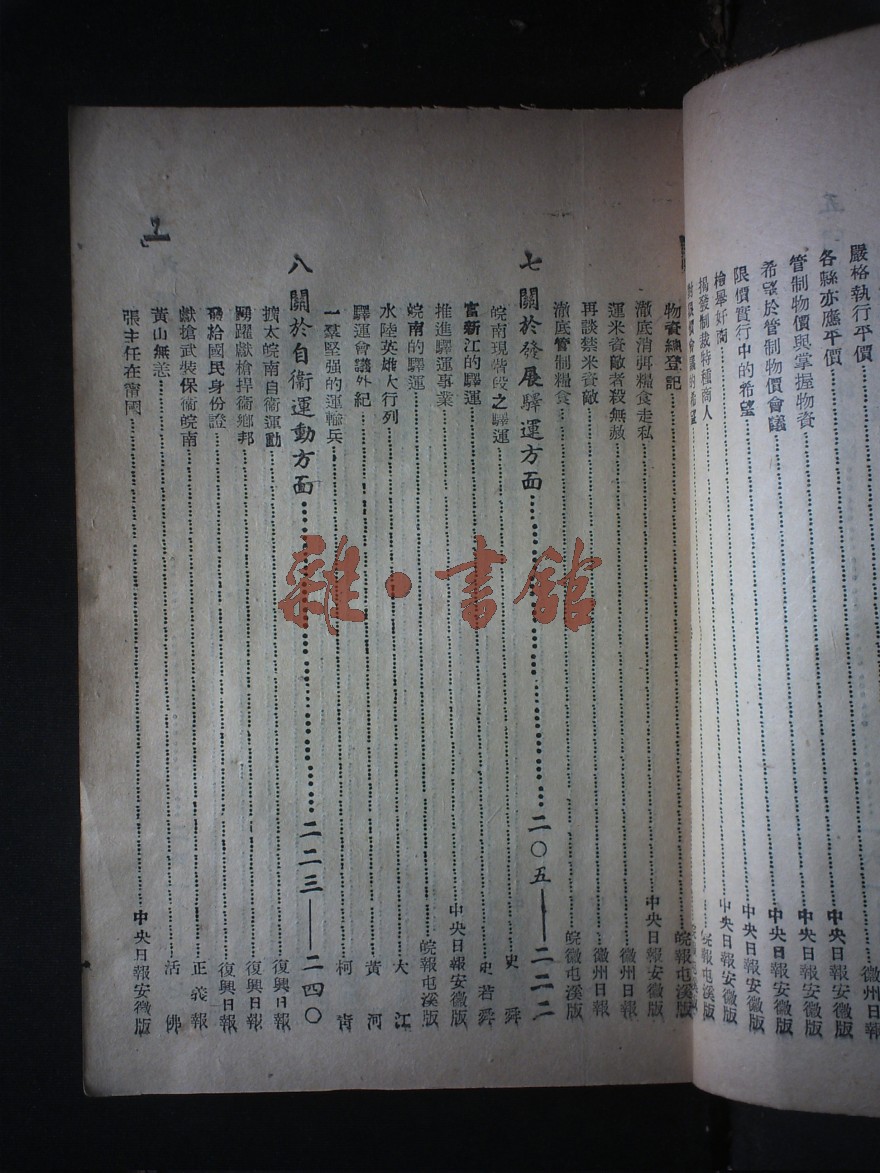 嚴格執行平價 徽州日報
各縣亦應平價 中央日報安徽版
管制物價與掌握物資 中央日報安徽版
希望於管制物價會議 中央日報安徽版
限價實行中的希望 中央日報安徽版
檢舉奸商 中央日報安徽版
揭發制裁特種商人 皖報屯溪版
物資總登記 皖報屯溪版
澈底消弭糧食走私 中央日報安徽版
運米資敵者殺無赦 徽州日報
再談禁米資敵 徽州日報
澈底管制糧食 皖徽屯溪版
七 關於發展驛運方面 二〇五——二二二
皖南現階段之驛運 史舜
富新江的驛運 史若舜
推進驛運事業 中央日報安徽版
皖南的驛運 皖報屯溪版
水陸英雄大行列 大江
驛運會議外紀 黃河
一羣堅强的運輸兵 柯
八 關於自衛運動方面 二二三——二四〇
擴大皖南自衛運動 復興日報
踴躍獻槍捍衛鄉邦 復興日報
發給國民身份證 復興日報
獻搶武裝保衛皖南 正義報
黃山無恙 活佛
張主任在甯國 中央日報安徽版
雜·書館